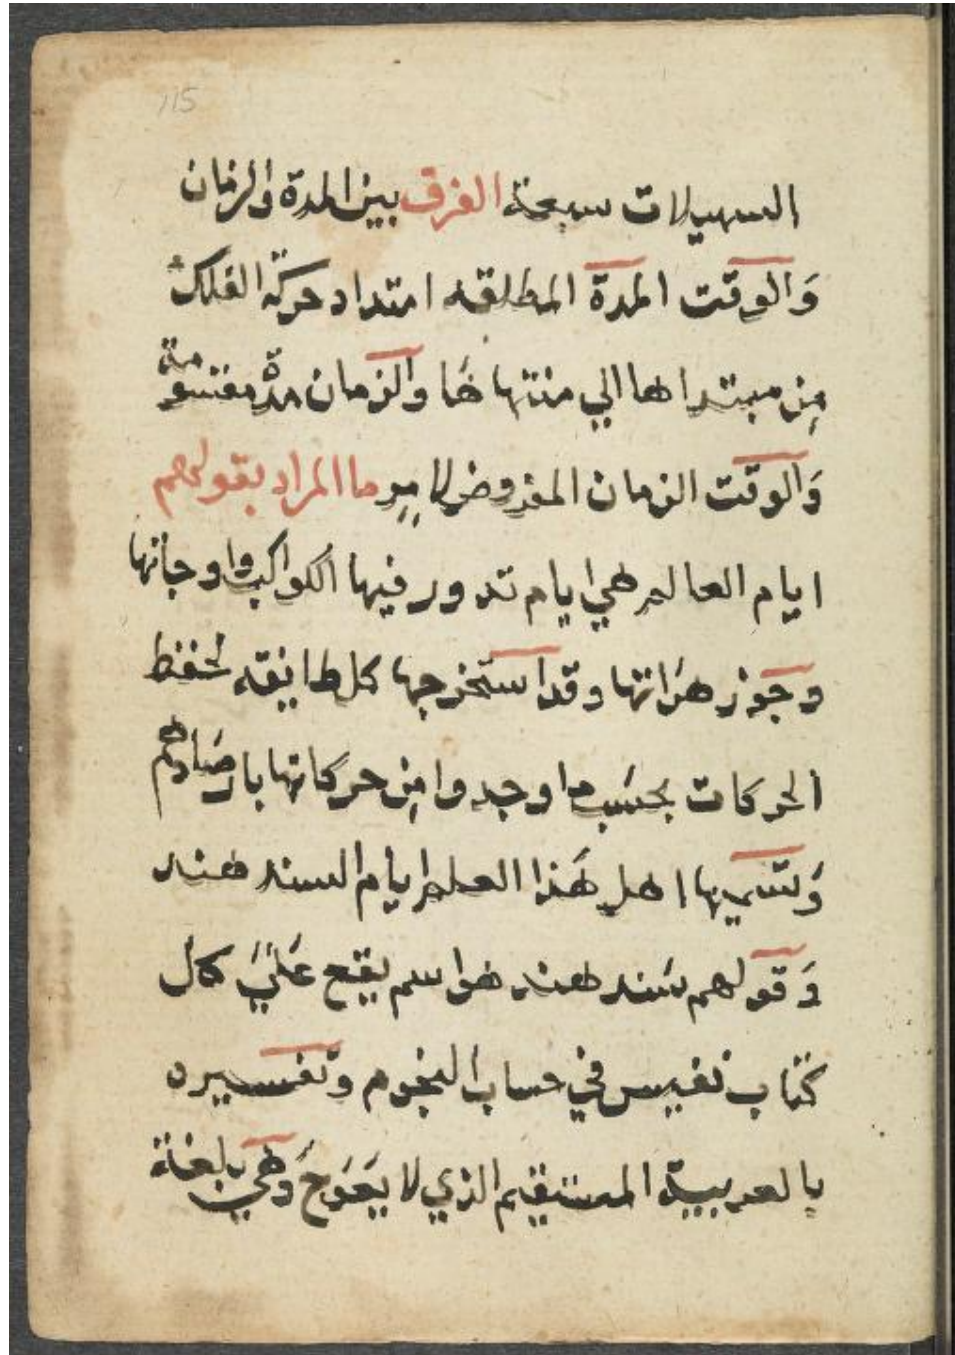 115
السهيلات سبعة الفرق بين المدة والزمان
وَالوقت المدة المطلقه امتداد حركة الفلك
مِن مبتداها الي منتهاها والزمان مدة مقتسومة
وَالوقت الزمان المفروض لامرٍ ما المراد بقولهم
ايام العالم هي ايام تدور فيها الكواكب واوجاتها
وجوزهراتها وقد استخرجها كل طايفه لحفظ
الحركات بحسَب ما وجدوا مِن حركاتها بارصَادهم
وَتسميها اهل هَذا العلم ايام السند هند
وَقولهم سَند هند هو اسم يقع عَليَ كل
كتاب نفيس في حساب النجوم وتفسيره
بالعربية المستقيم الذي لا يَعَوَج وَهي بلغة